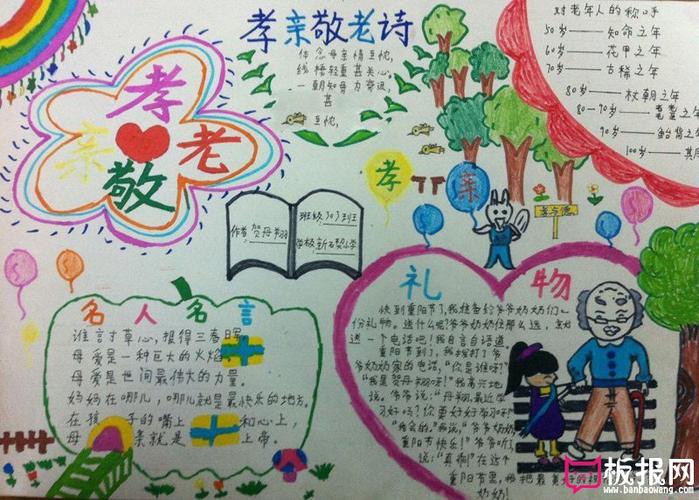 孝亲敬老诗
体念母亲情豆忱,
线檐轻重甚关心,
一朝知母力
甚
豆忱,
孝
亲
老
敬
对老年人的称呼
50岁——知命之年
60岁——花甲之年
70岁——古稀之年
80岁——杖朝之年
80-90岁——耄耋之年
90岁——鲐背之年
100岁——
孝
亲
班级 303班
作者 贺丹翔
学校
名人名言
谁言寸草心,报得三春晖。
母爱是一种巨大的火焰。
母爱是世间最伟大的力量。
妈妈在哪儿,哪儿就是最快乐的地方。
在孩子的嘴上和心上,
母亲就是上帝。
礼物
快到重阳节了,我准备给爷爷奶奶们一
份礼物。送什么呢?爷爷奶奶住那么远,
送一个电话吧!我自言自语道。
重阳节到了,我拨打了爷
爷奶奶家的电话,"你是谁呀?"
"我是贺丹翔呀!"我高兴地
说。爷爷说:"丹翔,最近学
习好吗?你要好好学习呀!"
"我会的。"我说,"爷爷奶奶
重阳节快乐!"爷爷听了
说:"真乖!"在这个
重阳节里,我把最美好的祝
奶奶!
板报网
www.banbaowang.com